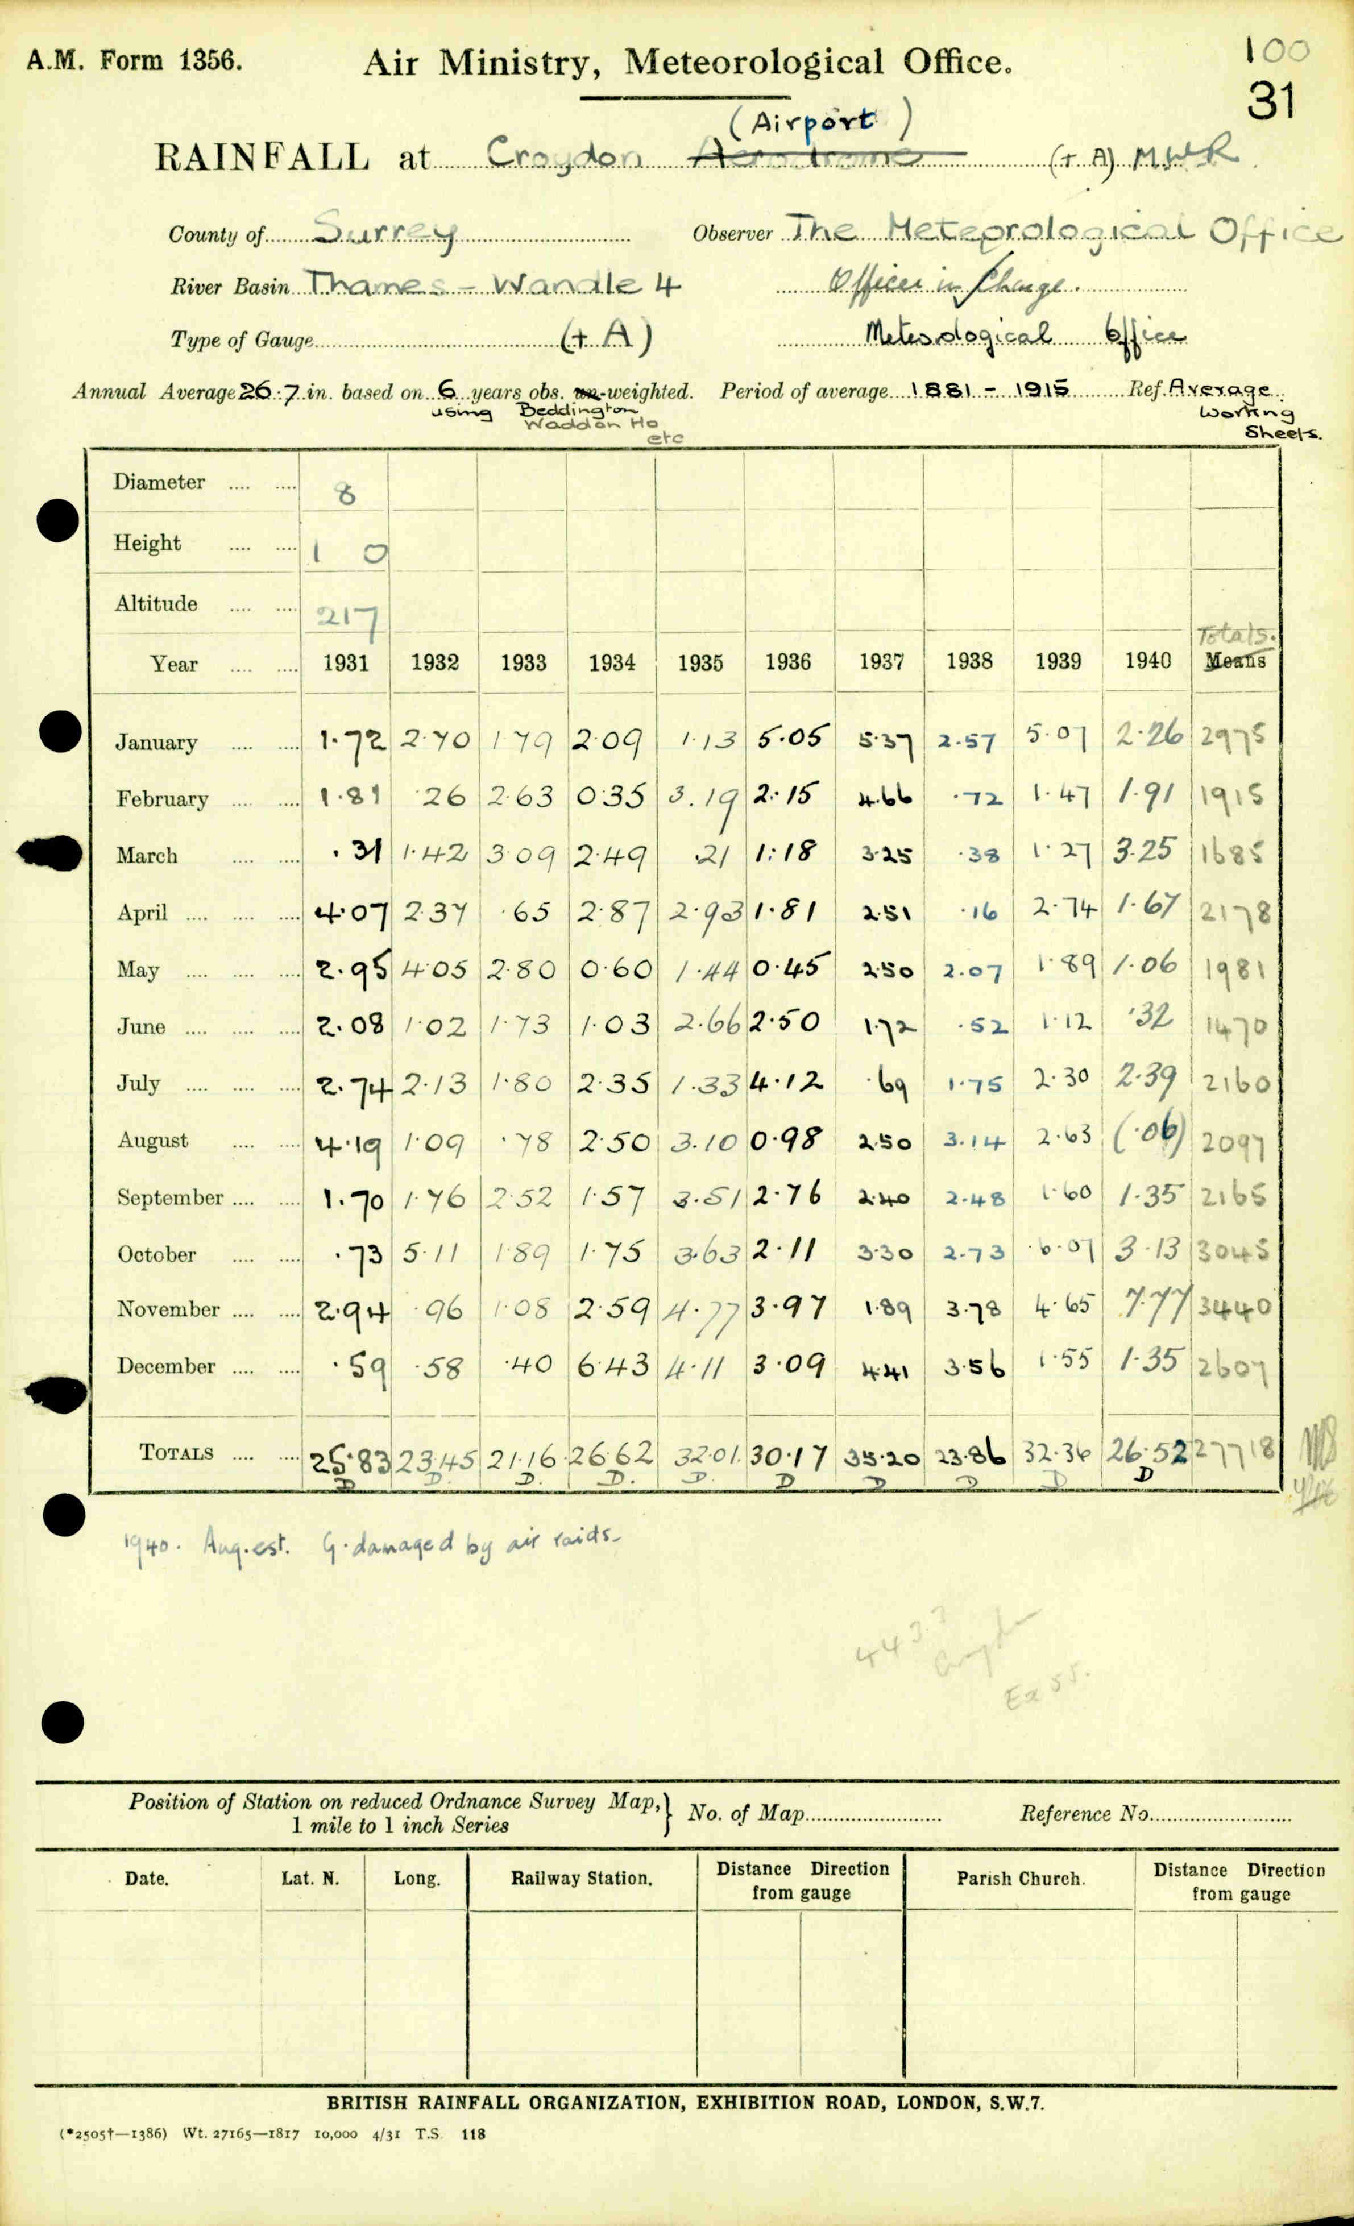 A.M. Form 1356.
Air Ministry, Meteorological Office.
100
31
(Airport)
RAINFALL at Croydon Aerodrome (+ A) MWR
County of Surrey Observer The Meteorological Office
River Basin Thames - Wandle 4 Officer in Charge.
Type of Gauge (+ A) Meteorological Office
Annual Average 26.7 in. based on 6 years obs. un-weighted. Period of average 1881 - 1915 Ref. Average
using Beddington Working
Waddon Ho Sheets.
etc
Diameter 8
Height 1 0
Altitude 217
Totals.
Year 1931 1932 1933 1934 1935 1936 1937 1938 1939 1940 Means
January 1.72 2.70 1.79 2.09 1.13 5.05 5.37 2.57 5.07 2.26 2975
February 1.81 .26 2.63 0.35 3.19 2.15 4.66 .72 1.47 1.91 1915
March .31 1.42 3.09 2.49 .21 1.18 3.25 .38 1.27 3.25 1685
April 4.07 2.37 .65 2.87 2.93 1.81 2.51 .16 2.74 1.67 2178
May 2.95 4.05 2.80 0.60 1.44 0.45 2.50 2.07 1.89 1.06 1981
June 2.08 1.02 1.73 1.03 2.66 2.50 1.72 .52 1.12 .32 1470
July 2.74 2.13 1.80 2.35 1.33 4.12 .69 1.75 2.30 2.39 2160
August 4.19 1.09 .78 2.50 3.10 0.98 2.50 3.14 2.63 (.06) 2097
September 1.70 1.76 2.52 1.57 3.51 2.76 2.40 2.48 1.60 1.35 2165
October .73 5.11 1.89 1.75 3.63 2.11 3.30 2.73 6.07 3.13 3045
November 2.94 .96 1.08 2.59 4.77 3.97 1.89 3.78 4.65 7.77 3440
December .59 .58 .40 6.43 4.11 3.09 4.41 3.56 1.55 1.35 2607
TOTALS 25.83 23.45 21.16 26.62 32.01 30.17 35.20 23.86 32.36 26.52 27718
D D. D. D. D. D D D D D
1940. Aug. est. G. damaged by air raids.
4433
Croydon
Ex 55.
Position of Station on reduced Ordnance Survey Map, } No. of Map Reference No.
1 mile to 1 inch Series
Date. Lat. N. Long. Railway Station. Distance Direction from gauge Parish Church. Distance Direction from gauge
BRITISH RAINFALL ORGANIZATION, EXHIBITION ROAD, LONDON, S.W.7.
(*2505†—1386) Wt. 27165—1817 10,000 4/31 T.S. 118